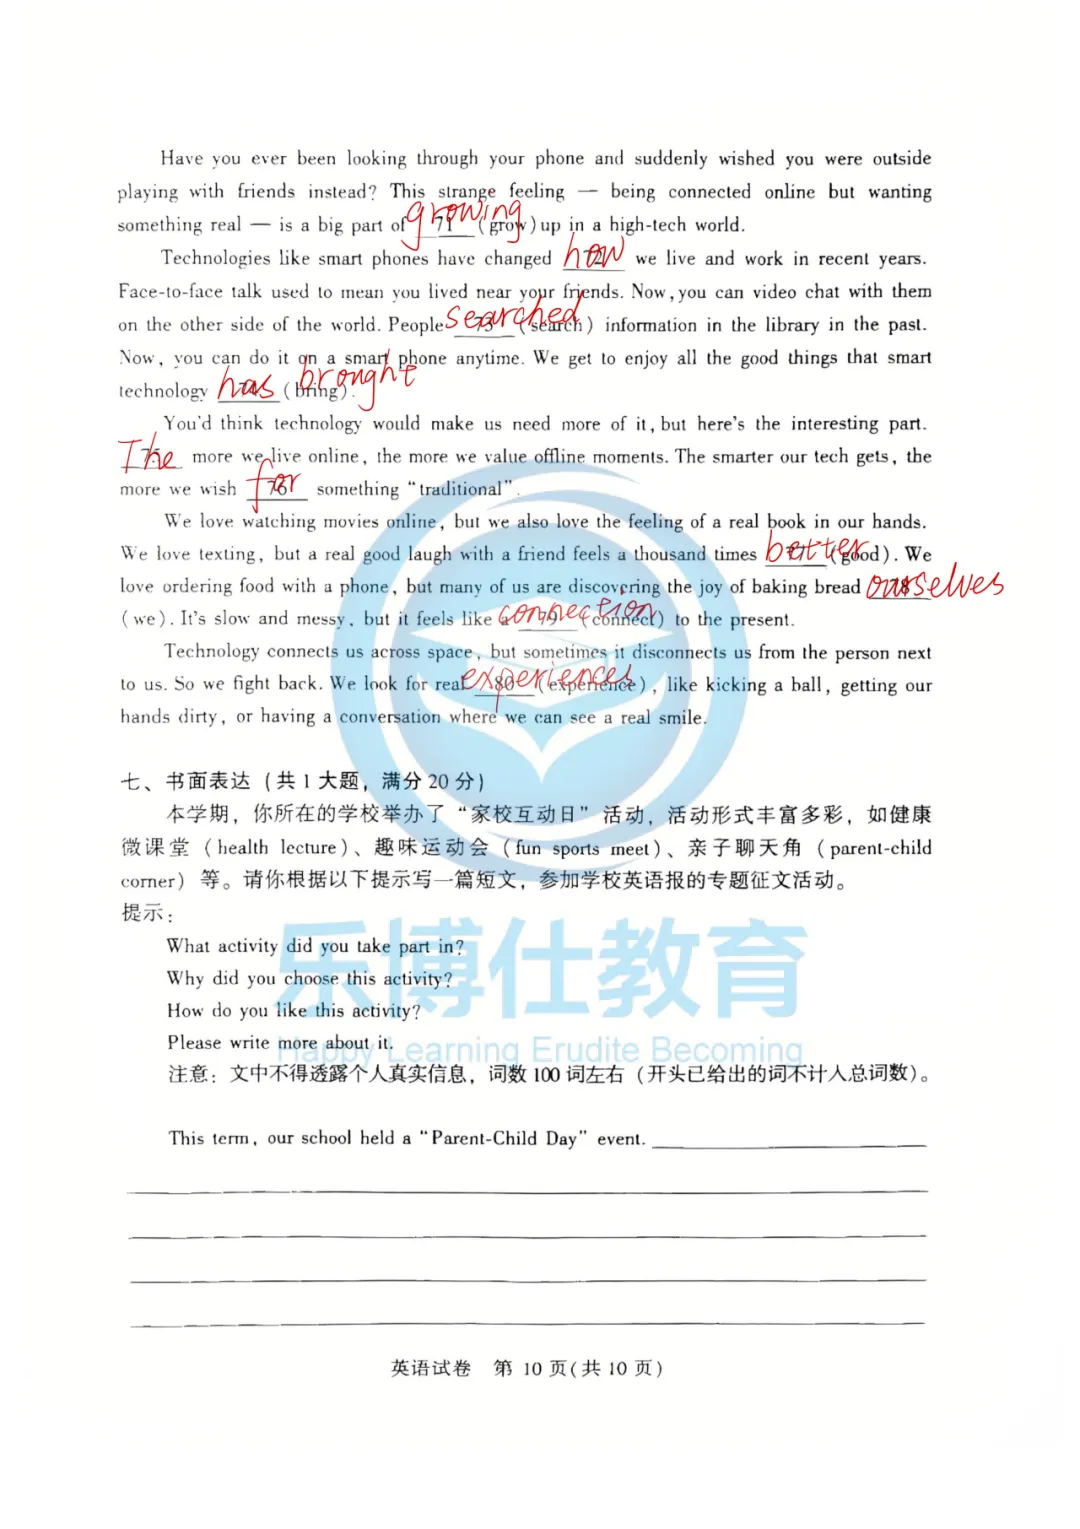 Have you ever been looking through your phone and suddenly wished you were outside
playing with friends instead? This strange feeling — being connected online but wanting
something real — is a big part of growing 71 (grow) up in a high-tech world.
Technologies like smart phones have changed how 72 we live and work in recent years.
Face-to-face talk used to mean you lived near your friends. Now, you can video chat with them
on the other side of the world. People searched 73 (search) information in the library in the past.
Now, you can do it on a smart phone anytime. We get to enjoy all the good things that smart
technology has brought 74 (bring).
You'd think technology would make us need more of it, but here's the interesting part.
The 75 more we live online, the more we value offline moments. The smarter our tech gets, the
more we wish for 76 something "traditional".
We love watching movies online, but we also love the feeling of a real book in our hands.
We love texting, but a real good laugh with a friend feels a thousand times better 77 (good). We
love ordering food with a phone, but many of us are discovering the joy of baking bread ourselves 78
(we). It's slow and messy, but it feels like a connection 79 (connect) to the present.
Technology connects us across space, but sometimes it disconnects us from the person next
to us. So we fight back. We look for real experiences 80 (experience), like kicking a ball, getting our
hands dirty, or having a conversation where we can see a real smile.
七、书面表达（共 1 大题，满分 20 分）
本学期，你所在的学校举办了“家校互动日”活动，活动形式丰富多彩，如健康
微课堂（health lecture）、趣味运动会（fun sports meet）、亲子聊天角（parent-child
corner）等。请你根据以下提示写一篇短文，参加学校英语报的专题征文活动。
提示：
What activity did you take part in?
Why did you choose this activity?
How do you like this activity?
Please write more about it.
注意：文中不得透露个人真实信息，词数 100 词左右（开头已给出的词不计入总词数）。
This term, our school held a "Parent-Child Day" event.
英语试卷 第 10 页(共 10 页)
乐博仕教育
Happy Learning Erudite Becoming